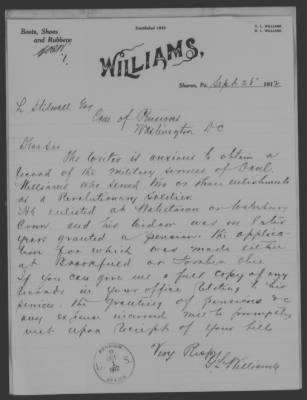 Boots, Shoes
and Rubbers
Established 1842
C. L. WILLIAMS
WILLIAMS,
Sharon, Pa. Sept 25" 1912
L Stilwell Esq
Com of Pensions
Washington D C
Dear Sir
The writer is anxious to obtain a
record of the military services of Danl
Williams who served two or three enlistments
as a Revolutionary Soldier.
He enlisted at Watertown or Waterbury
Conn. and his widow was in later
years granted a pension. The applica-
tion for which was made either
at Brookfield or Ohio
If you can give me a full copy of any
records in your office relating to his
services. the granting of pensions &c
any expense incurred will be promptly
met upon receipt of your bill
Very Respy
Williams